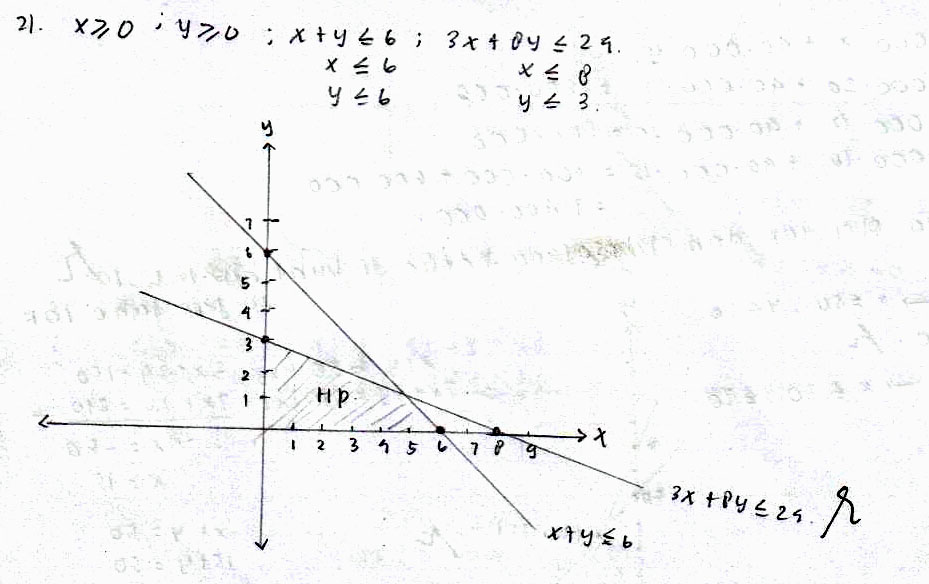 21. x ≥ 0 ; y ≥ 0 ; x + y ≤ 6 ; 3x + 8y ≤ 24.
x ≤ 6 x ≤ 8
y ≤ 6 y ≤ 3.
y
7
6
5
4
3
2
1
Hp.
x
1 2 3 4 5 6 7 8 9
3x + 8y ≤ 24.
x + y ≤ 6